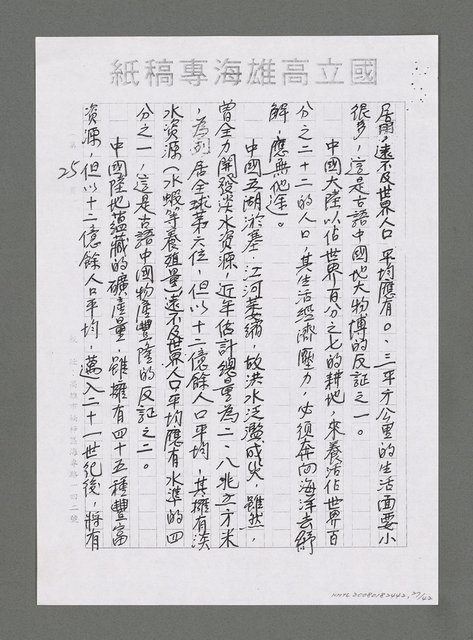 國立高雄海專稿紙
居間，遠不及世界人口平均應有〇．三平方公里的生活面要小
很多，這是古語中國地大物博的反証之一。
中國大陸以佔世界百分之七的耕地，來養活佔世界百
分之二十二的人口，其生活經濟壓力，必須奔向海洋去紓
解，應無他途。
中國五湖淤塞，江河萎縮，故洪水泛濫成災，雖然，
曾全力開發淡水資源，近年估計總量為二．八兆立方米
，為列居全球第六位，但以十二億餘人口平均，其擁有淡
水資源（水蝦等養殖量遠不及世界人口平均應有水準的四
分之一，這是古語中國物產豐隆的反証之二。
中國陸地蘊藏的礦產量，雖擁有四十五種豐富
資源，但以十二億餘人口平均，邁入二十一世紀後，將有
25
NMTL20080182442, 27/42